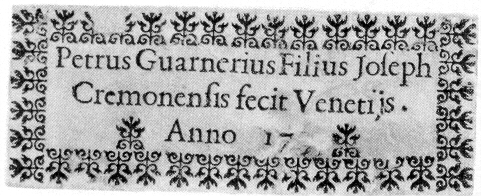 Petrus Guarnerius Filius Joſeph
Cremonenſis fecit Venetijs.
Anno 17